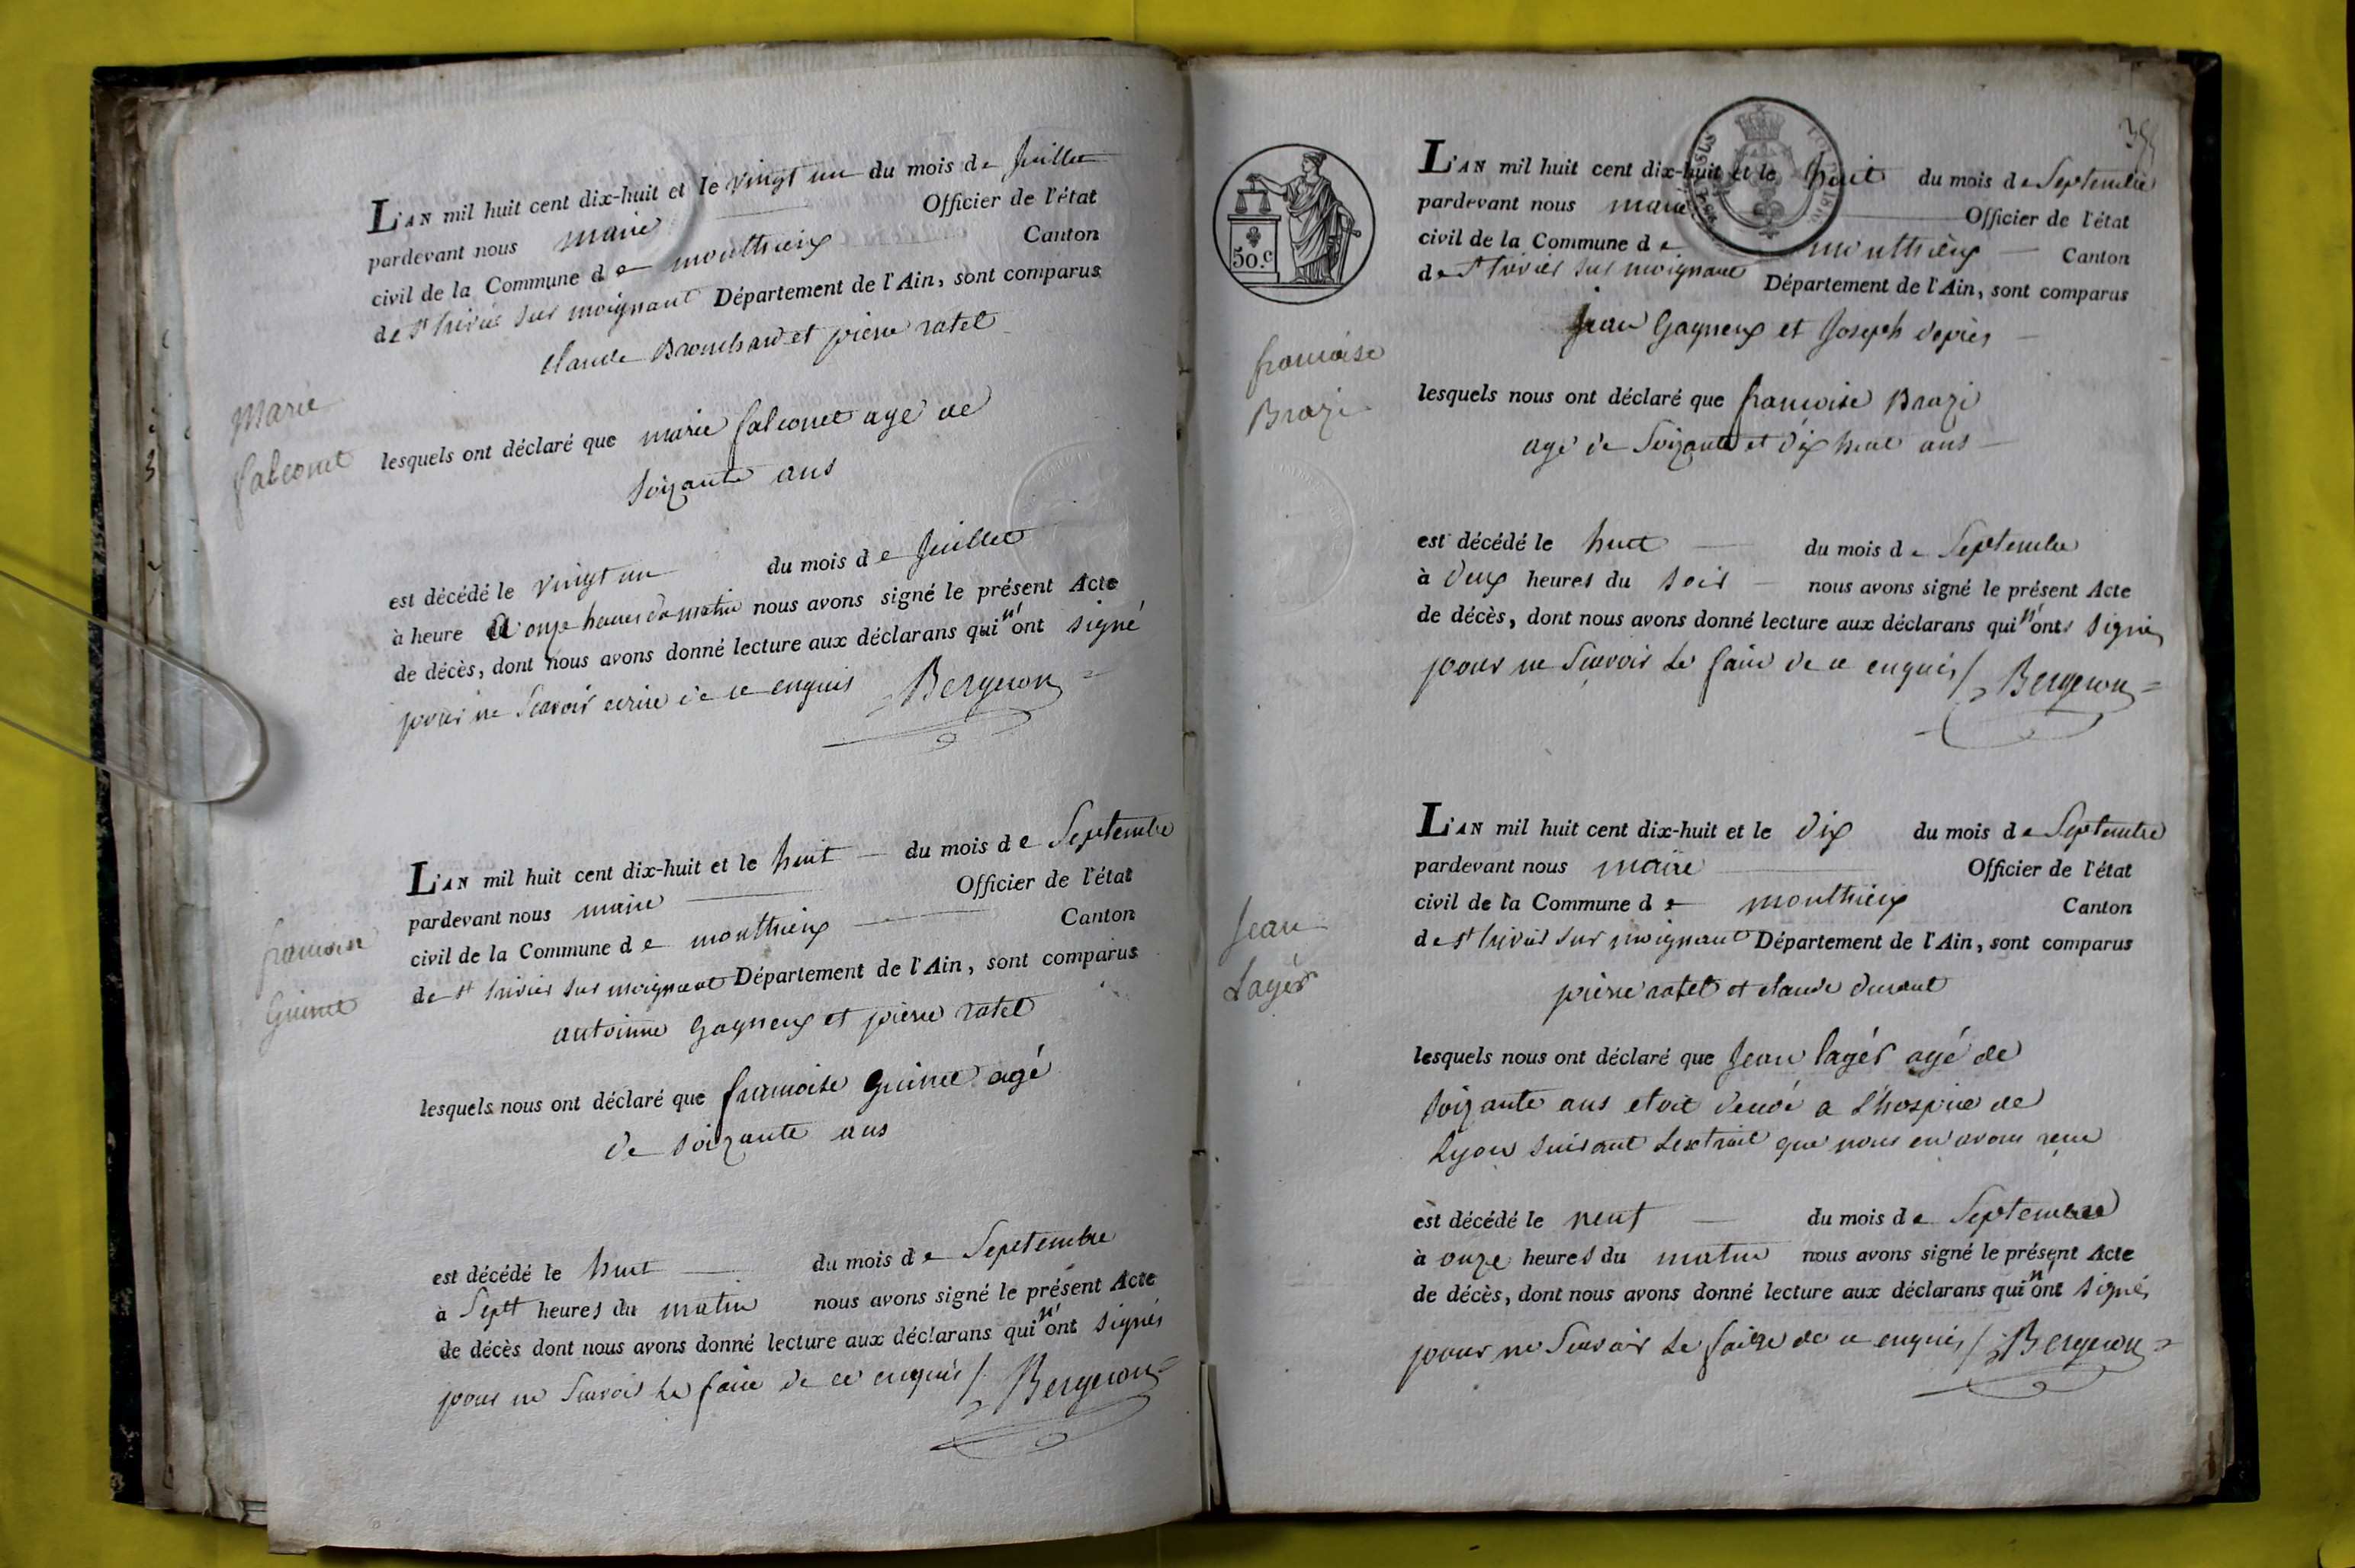 L'AN mil huit cent dix-huit et le vingt un du mois de Juillet
pardevant nous maire Officier de l'état
civil de la Commune de monthieux Canton
de st trivier sur moignant Département de l'Ain, sont comparus
claude Brouchard et pierre ratel
Marie
falconet
lesquels ont déclaré que marie falconet agé de
soixante ans
est décédé le vingt un du mois de Juillet
à heure onze heures du matin nous avons signé le présent Acte
de décès, dont nous avons donné lecture aux déclarans qui n'ont signé
pour ne scavoir ecrire de ce enquis Bergeron
L'AN mil huit cent dix-huit et le huit du mois de Septembre
pardevant nous maire Officier de l'état
civil de la Commune de monthieux Canton
de st trivier sur moignant Département de l'Ain, sont comparus
antoinne Gagneux et pierre ratel
francoise
Guinet
lesquels nous ont déclaré que francoise Guinet agé
de soixante ans
est décédé le huit du mois de Sepetembre
à Sept heures du matin nous avons signé le présent Acte
de décès dont nous avons donné lecture aux déclarans qui n'ont signés
pour ne scavoir le faire de ce enquis / Bergeron
L'AN mil huit cent dix-huit et le huit du mois de Septembre
pardevant nous maire Officier de l'état
civil de la Commune de monthieux Canton
de st trivier sur moignant Département de l'Ain, sont comparus
50.c
Jean Gagneux et Joseph
francoise
Brazi
lesquels nous ont déclaré que francoise Brazi
agé de soixante et dix huit ans
est décédé le huit du mois de Septembre
à deux heures du soir nous avons signé le présent Acte
de décès, dont nous avons donné lecture aux déclarans qui n'ont signés
pour ne scavoir le faire de ce enquis / Bergeron
L'AN mil huit cent dix-huit et le dix du mois de Septembre
pardevant nous maire Officier de l'état
civil de la Commune de monthieux Canton
de st trivier sur moignant Département de l'Ain, sont comparus
pierre ratel et claude durant
Jean
Lagér
lesquels nous ont déclaré que Jean lagér agé de
soixante ans etoit a L'hospice de
Lyon suivant Lextrait que nous en avons recu
est décédé le neuf du mois de Septembre
à onze heures du matin nous avons signé le présent Acte
de décès, dont nous avons donné lecture aux déclarans qui n'ont signés
pour ne scavoir le faire de ce enquis / Bergeron